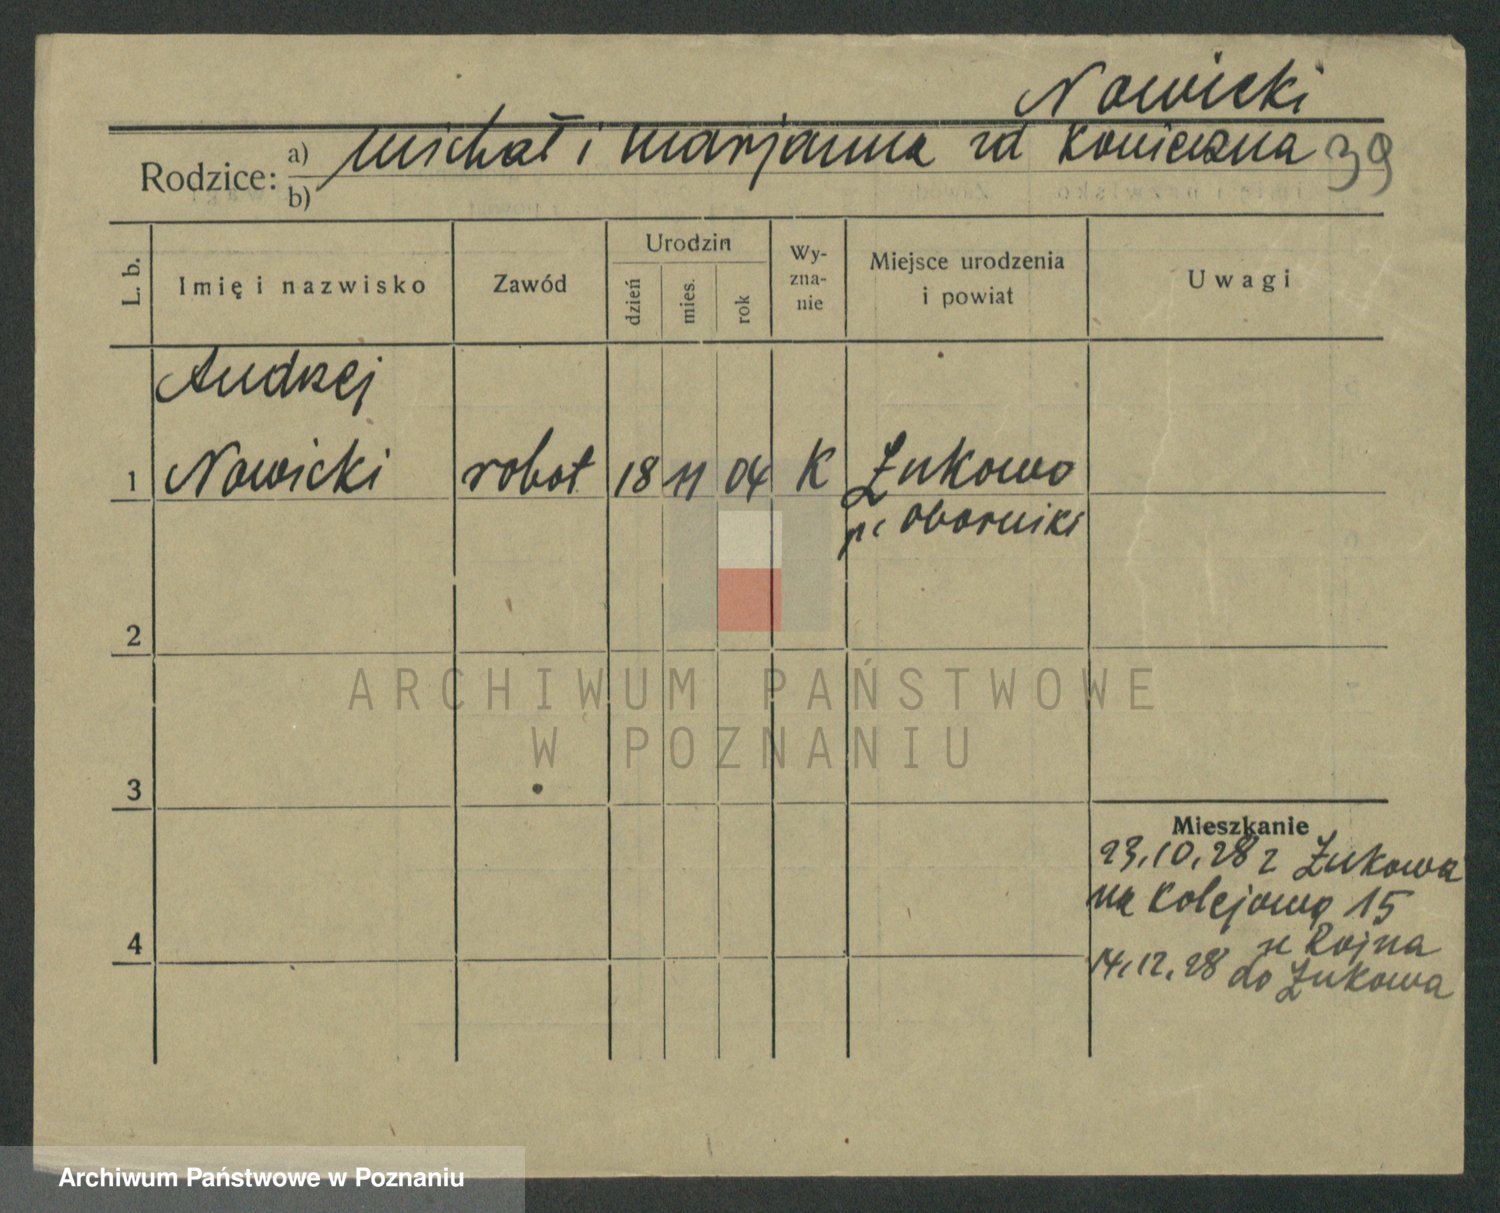 Nowicki
Rodzice: a) Michał i Marjanna zd Konieczna 39
b)
L. b.
Imię i nazwisko
Zawód
Urodzin
dzień
mies.
rok
Wy-
zna-
nie
Miejsce urodzenia
i powiat
Uwagi
Andrzej
1 Nowicki robot 18 11 04 K Żukowo
p. Oborniki
2
ARCHIWUM PAŃSTWOWE
W POZNANIU
3
Mieszkanie
23.10.28 z Żukowa
na Kolejową 15
u Rojna
4
14.12.28 do Żukowa
Archiwum Państwowe w Poznaniu